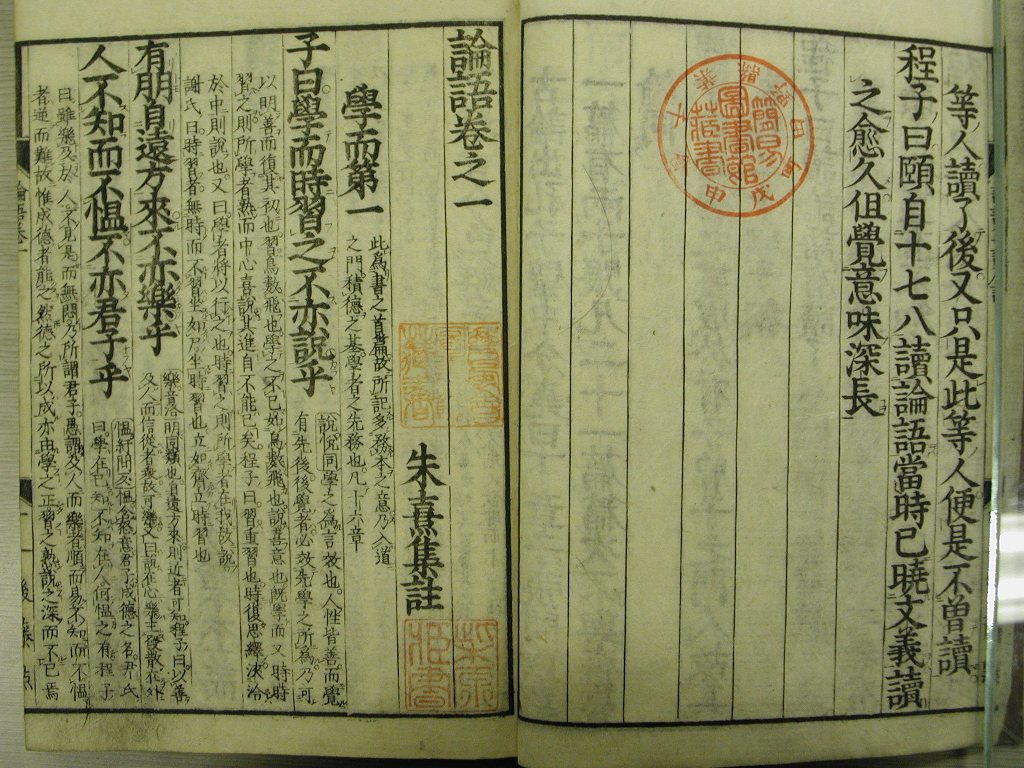 等人讀了後又只是此等人便是不曽讀
程子曰頤自十七八讀論語當時已曉文義讀
之愈久但覺意味深長
論語卷之一
朱熹集註
學而第一
此爲書之首篇故所記多務本之意乃入道
之門積德之基學者之先務也凡十六章
子曰學而時習之不亦說乎
說悅同學之爲言效也人性皆善而覺
有先後後覺者必效先覺之所爲乃可
以明善而復其初也習鳥數飛也學之不已如鳥數飛也說喜意也既學而又時時
習之則所學者熟而中心喜說其進自不能已矣程子曰習重習也時復思繹浹洽
於中則說也又曰學者將以行之也時習之則所學者在我故說
謝氏曰時習者無時而不習坐如尸坐時習也立如齊立時習也
有朋自遠方來不亦樂乎
樂音洛朋同類也自遠方來則近者可知程子曰以善
及人而信從者衆故可樂又曰說在心樂主發散在外
人不知而不慍不亦君子乎
慍紆問反慍含怒意君子成德之名尹氏
曰學在己知不知在人何慍之有程子
曰雖樂於及人不見是而無悶乃所謂君子愚謂及人而樂者順而易不知而不慍
者逆而難故惟成德者能之然德之所以成亦由學之正習之熟說之深而不已焉